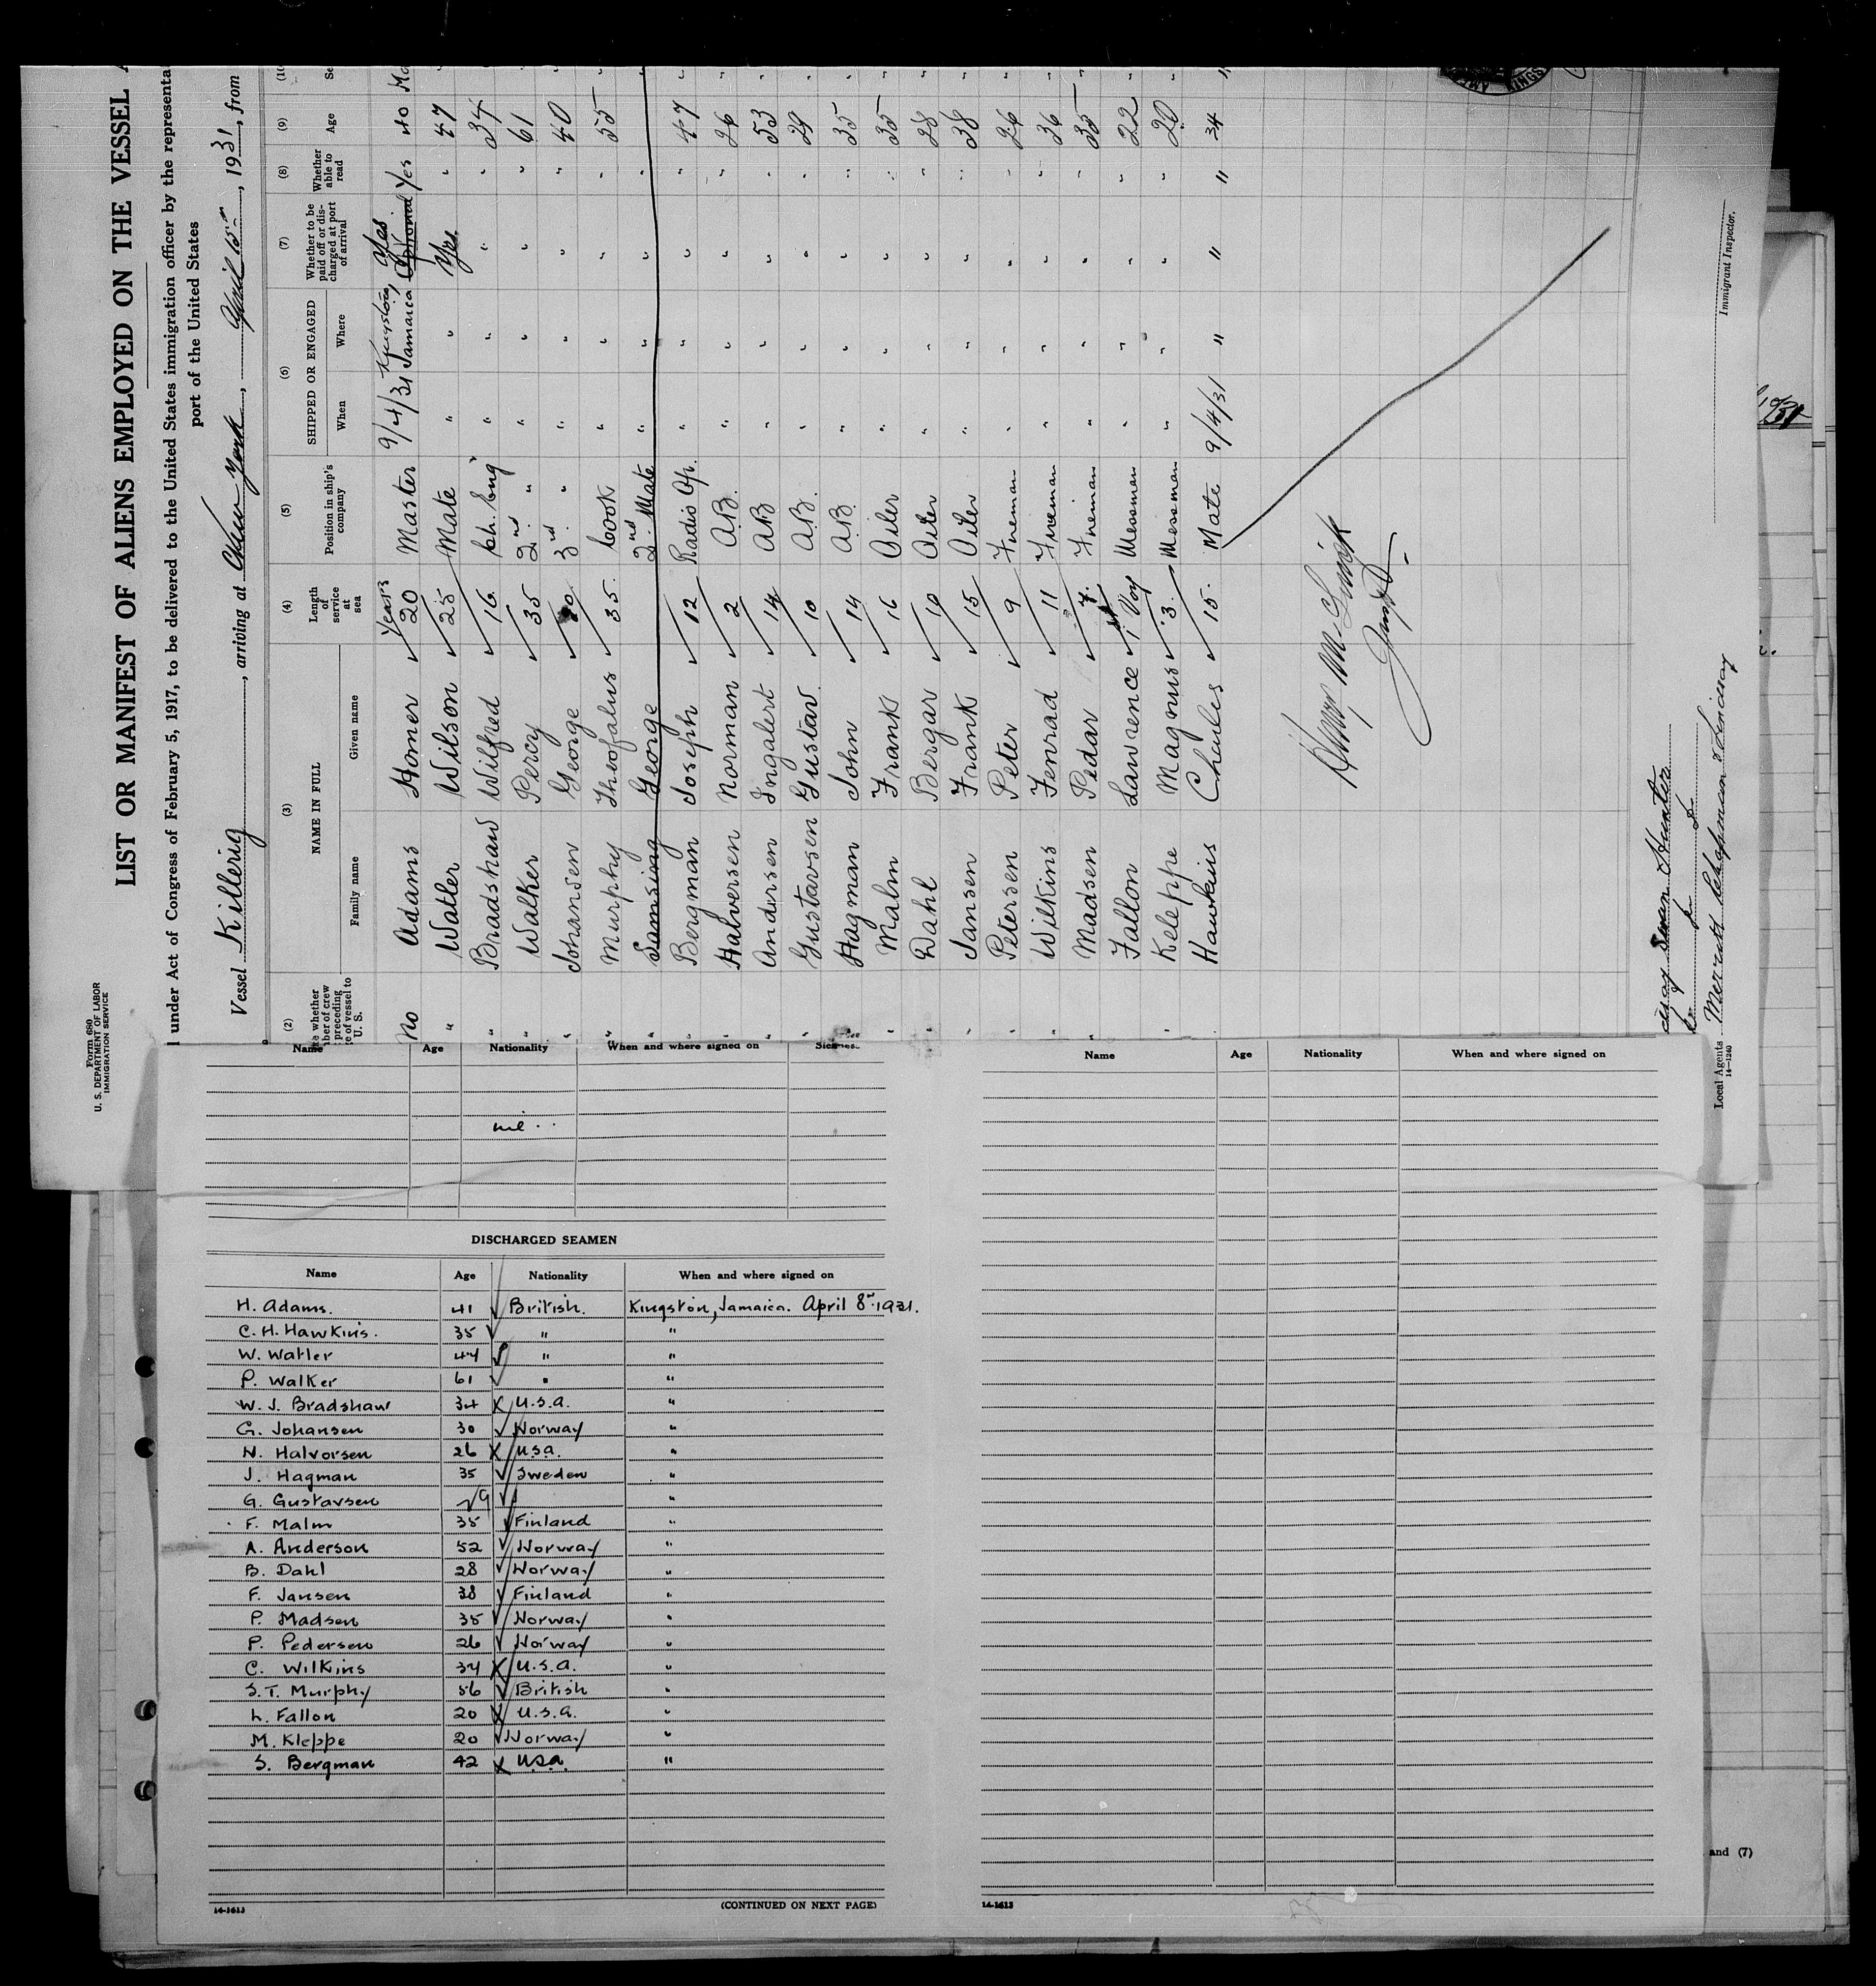 Form 680
U. S. DEPARTMENT OF LABOR
IMMIGRATION SERVICE
LIST OR MANIFEST OF ALIENS EMPLOYED ON THE VESSEL
under Act of Congress of February 5, 1917, to be delivered to the United States immigration officer by the representa
port of the United States
Vessel Killerig, arriving at New York, April 15, 1931, from
(2) (3) (4) (5) (6) (7) (8) (9)
NAME IN FULL
Family name Given name
Length of service at sea
Position in ship's company
SHIPPED OR ENGAGED
When Where
Whether to be paid off or discharged at port of arrival
Whether able to read
Age
no Adams Homer Years 20 Master 9/4/31 Kingston, Jamaica Yes Optional Yes 40
" Watler Wilson 25 Mate " " Yes " 47
" Bradshaw Wilfred 16 ch. Eng " " " " 34
" Walker Percy 35 2nd " " " " " 61
" Johansen George 3rd " " " " " 40
" Murphy Theofalus 35 Cook " " " " 55
" Samsing George 2nd Mate " " " "
" Bergman Joseph 12 Radio Op. " " " " 47
" Halversen Norman 2 A.B. " " " " 26
" Andersen Ingalert 14 AB " " " " 53
" Gustavsen Gustav 10 A.B. " " " " 29
" Hagman John 14 A.B. " " " " 35
" Malm Frank 16 Oiler " " " " 35
" Dahl Bergar 10 Oiler " " " " 28
" Jansen Frank 15 Oiler " " " " 38
" Petersen Peter 9 Fireman " " " " 26
" Wilkins Fenrad 11 Fireman " " " " 36
" Madsen Pedar 7 Fireman " " " " 35
Fallon Lawrence 1 Voy Messman " " " " 22
" Keleppe Magnus 3 Messman " " " " 20
Hawkins Charles 15 Mate 9/4/31 " " " 34
Immigrant Inspector.
Merritt Chapman & Lindsay
Local Agents
14—1240
Name Age Nationality When and where signed on
nil
DISCHARGED SEAMEN
Name Age Nationality When and where signed on
H. Adams. 41 British. Kingston, Jamaica. April 8th 1931.
C. H. Hawkins. 35 " "
W. Watler 47 " "
P. Walker 61 " "
W. J. Bradshaw 34 U.S.A. "
G. Johansen 30 Norway "
N. Halvorsen 26 U.S.A. "
J. Hagman 35 Sweden "
G. Gustavsen "
F. Malm 35 Finland "
A. Anderson 52 Norway "
B. Dahl 28 Norway "
F. Jansen 38 Finland "
P. Madsen 35 Norway "
P. Pedersen 26 Norway "
C. Wilkins 34 U.S.A. "
S. T. Murphy 56 British "
L. Fallon 20 U.S.A. "
M. Kleppe 20 Norway "
S. Bergman 42 U.S.A. "
14-1613
(CONTINUED ON NEXT PAGE)
Name Age Nationality When and where signed on
14-1613
and (7)